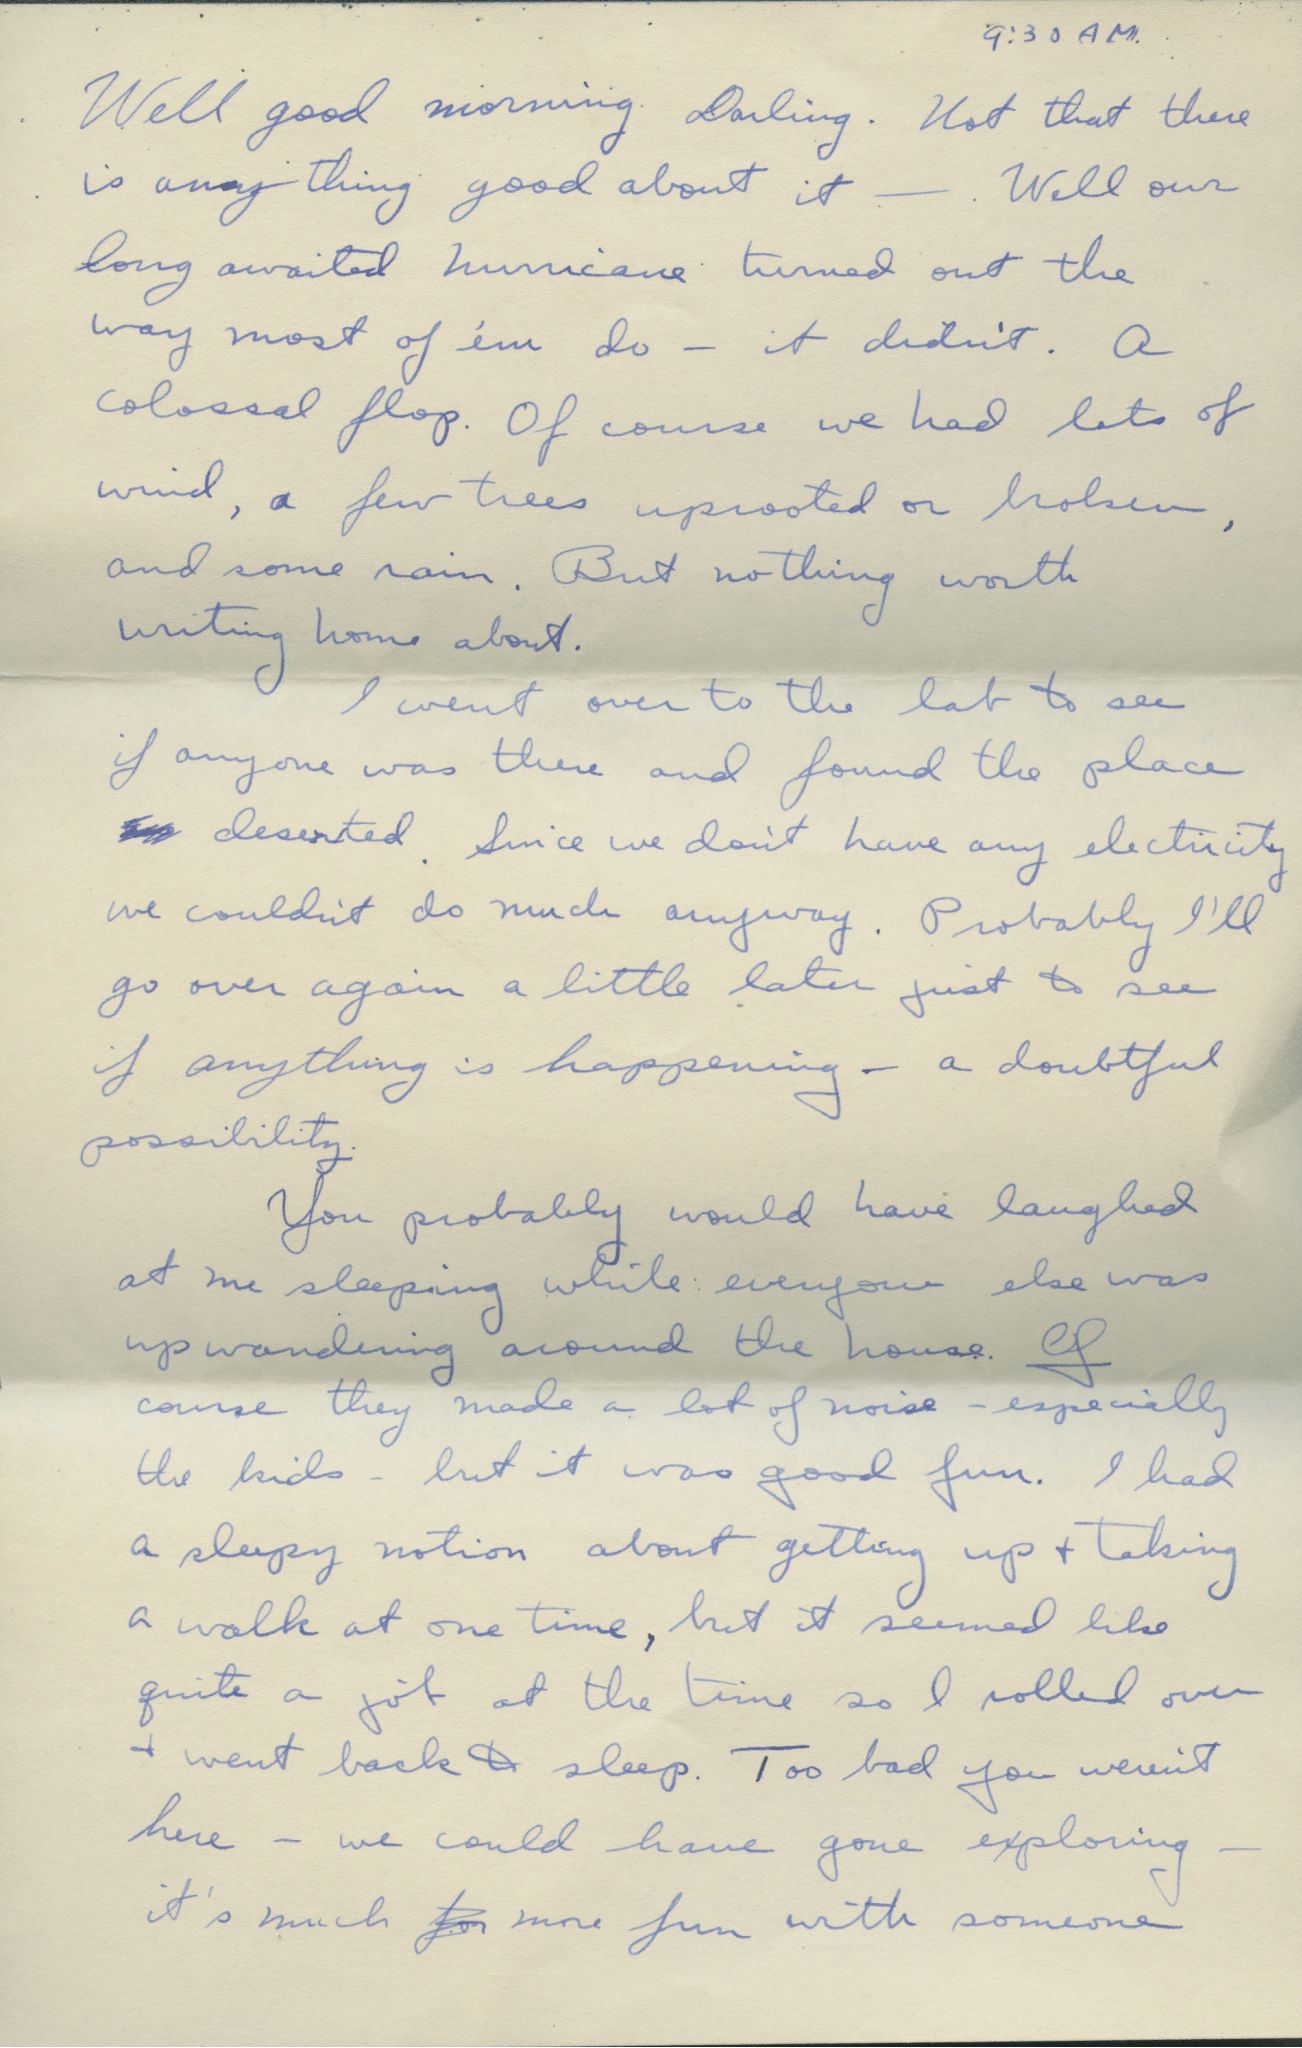 9:30 AM.
Well good morning Darling. Not that there
is anything good about it —. Well our
long awaited hurricane turned out the
way most of 'em do – it didn't. A
colossal flop. Of course we had lots of
wind, a few trees uprooted or broken,
and some rain. But nothing worth
writing home about.
I went over to the lab to see
if anyone was there and found the place
deserted. Since we don't have any electricity
we couldn't do much anyway. Probably I'll
go over again a little later just to see
if anything is happening – a doubtful
possibility.
You probably would have laughed
at me sleeping while everyone else was
up wandering around the house. Of
course they made a lot of noise – especially
the kids – but it was good fun. I had
a sleepy notion about getting up + taking
a walk at one time, but it seemed like
quite a job at the time so I rolled over
+ went back to sleep. Too bad you weren't
here – we could have gone exploring –
it's much for more fun with someone